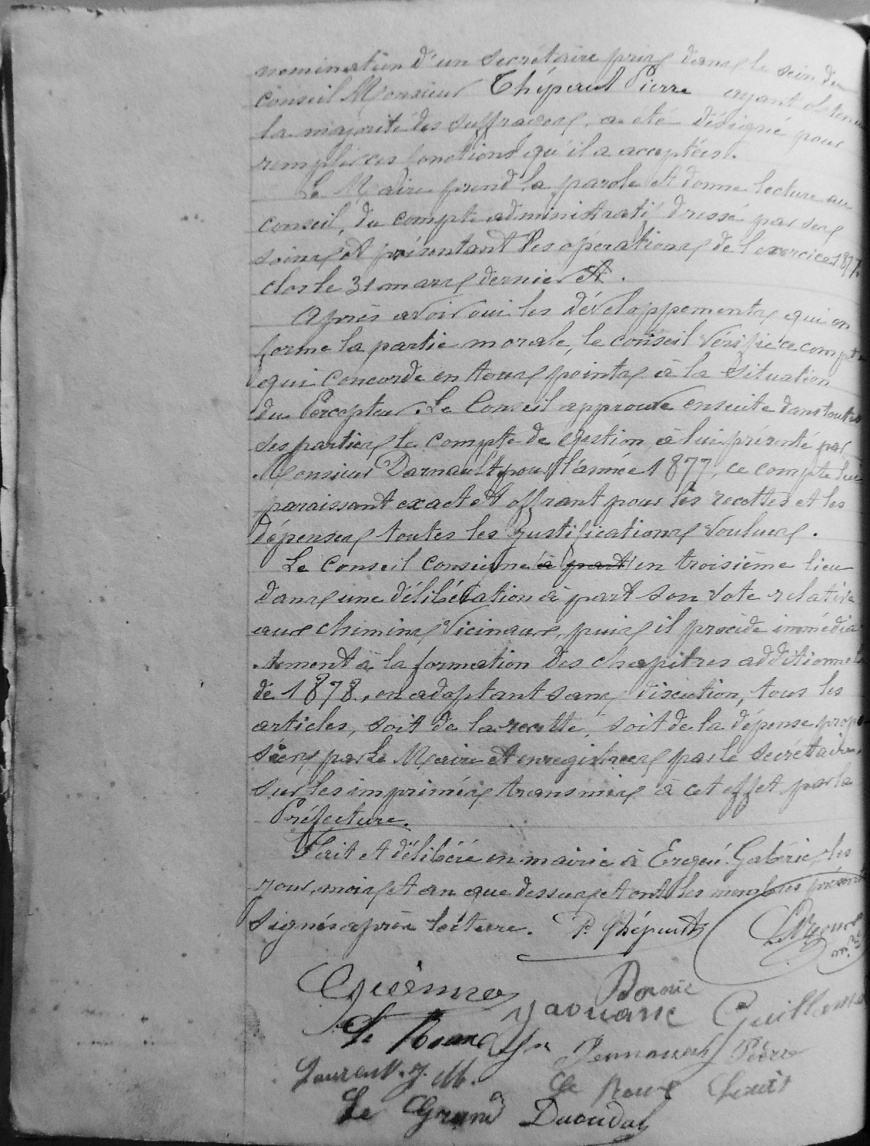 nomination d'un secrétaire pris dans le sein du
conseil Monsieur Thépaut Pierre ayant obtenu
la majorité des suffrages, a été désigné pour
remplir ces fonctions qu'il a acceptées.
Le Maire prend la parole et donne lecture au
conseil, du compte administratif dressé par ses
soins et présentant les opérations de l'exercice 1877
clos le 31 mars dernier.
Après avoir ouï les développements qui en
forme la partie morale, le conseil vérifie ce compte
qui concorde en tous points à la situation
du Percepteur. Le Conseil approuve ensuite dans toutes
ses parties le compte de gestion, à lui présenté par
Monsieur Darnault pour l'année 1877, ce compte lui
paraissant exact et offrant pour les recettes et les
dépenses toutes les justifications voulues.
Le Conseil consigne à part en troisième lieu
dans une délibération à part son vote relative
aux chemins vicinaux, puis il procède immédia-
tement à la formation des chapitres additionnels
de 1878, en adoptant sans discution, tous les
articles, soit de la recette, soit de la dépense propo-
sées par le Maire et enregistrées par le secrétaire
sur les imprimés transmis à cet effet par la
Préfecture.
Fait et délibéré en mairie à Ergué-Gabéric, les
jour, mois et an que dessus et ont les membres présents
signés après lecture. P. Thépaut
Yaouanc Guillaume
Jennaouah Pierre
Laurent. J. M. Le Roux Louis
Le Grand Daoudal